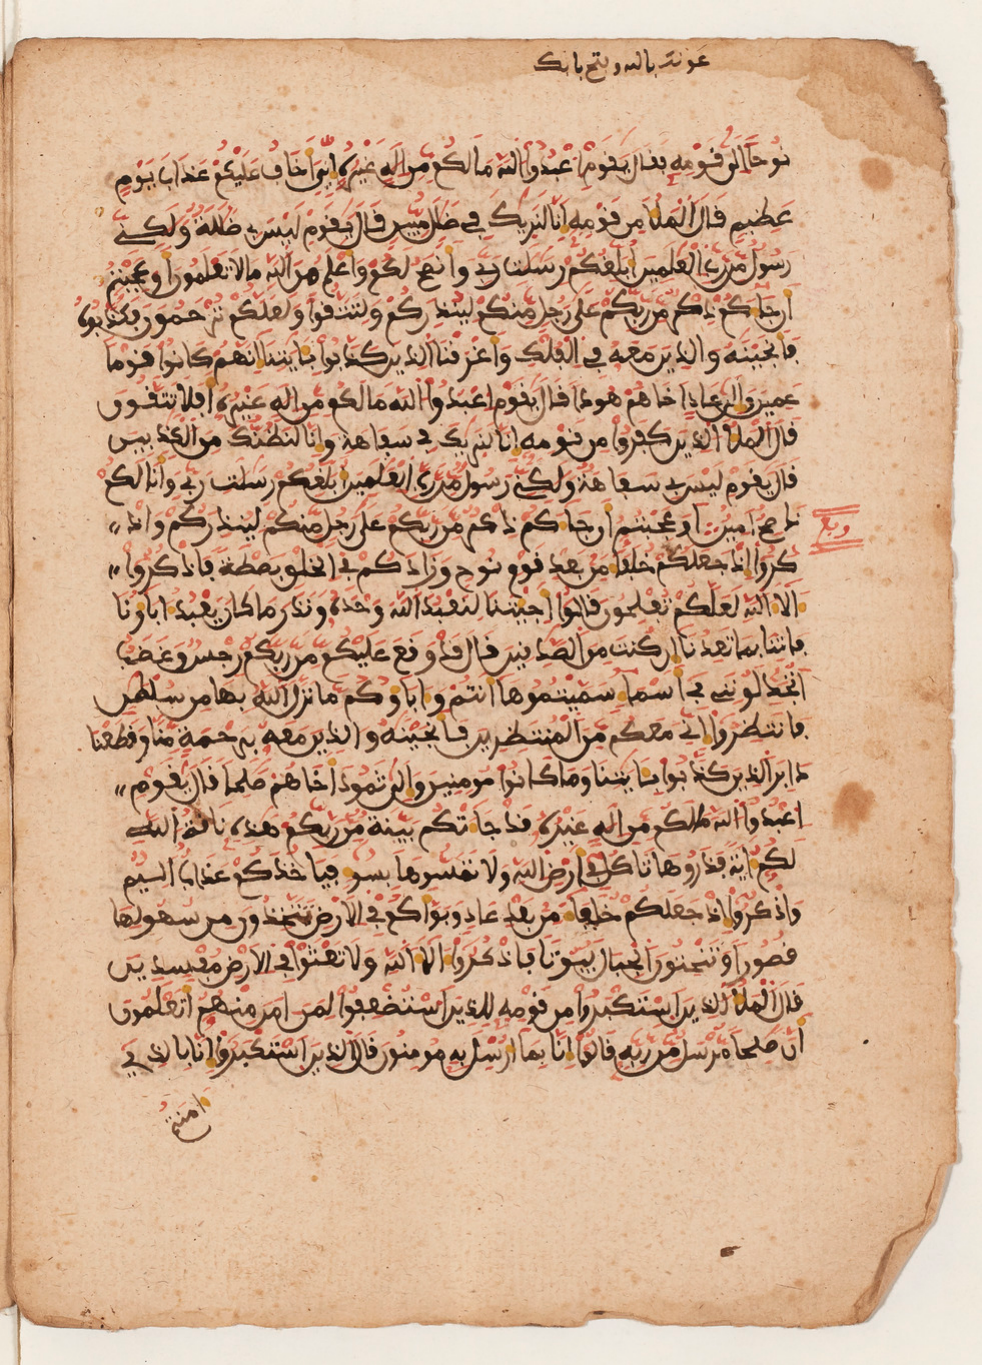 عونك بالله وبفتح بابك
نوحا الى قومه بفال يفوم اعبدوا الله ما لكم من اله غيره انى اخاف عليكم عذاب يوم
عظيم فال الملأ من فومه انا لنريك في ضلل مبين فال يفوم ليس بي ضللة ولكني
رسول من رب العلمين ابلغكم رسلت ربي وانصح لكم واعلم من الله ما لا تعلمون اوعجبتم
ان جاكم ذكر من ربكم على رجل منكم لينذركم ولتتفوا ولعلكم ترحمون فكذبوه
فانجينه والذين معه في الفلك واغرفنا الذين كذبوا بايتنا انهم كانوا فوما
عمين والى عاد اخاهم هودا فال يفوم اعبدوا الله ما لكم من اله غيره افلا تتفون
فال الملأ الذين كفروا من فومه انا لنريك في سفاهة وانا لنظنك من الكذبين
فال يفوم ليس بي سفاهة ولكني رسول من رب العلمين ابلغكم رسلت ربي وانا لكم
ناصح امين اوعجبتم ان جاكم ذكر من ربكم على رجل منكم لينذركم واذ
ربع
كروا اذ جعلكم خلفا من بعد فوم نوح وزادكم في الخلق بصطة فاذكروا
الا الله لعلكم تفلحون فالوا اجيتنا لنعبد الله وحده ونذر ما كان يعبد اباونا
فاتنا بما تعدنا ان كنت من الصدفين فال فد وفع عليكم من ربكم رجس وغضب
اتجدلونني في اسما سميتموها انتم واباوكم ما نزل الله بها من سلطن
فانتظروا اني معكم من المنتظرين فانجينه والذين معه برحمة منا وفطعنا
دابر الذين كذبوا بايتنا وما كانوا مومنين والى ثمود اخاهم صلحا فال يفوم
اعبدوا الله ما لكم من اله غيره فد جاتكم بينة من ربكم هذه نافة الله
لكم اية فذروها تاكل في ارض الله ولا تمسوها بسو فياخذكم عذاب اليم
واذكروا اذ جعلكم خلفا من بعد عاد وبواكم في الارض تتخذون من سهولها
فصورا وتنحتون الجبال بيوتا فاذكروا الا الله ولا تعثوا في الارض مفسدين
فال الملأ الذين استكبروا من فومه للذين استضعفوا لمن امن منهم اتعلمون
ان صلحا مرسل من ربه فالوا انا بما ارسل به مومنون فال الذين استكبروا انا بالذي
امنتم